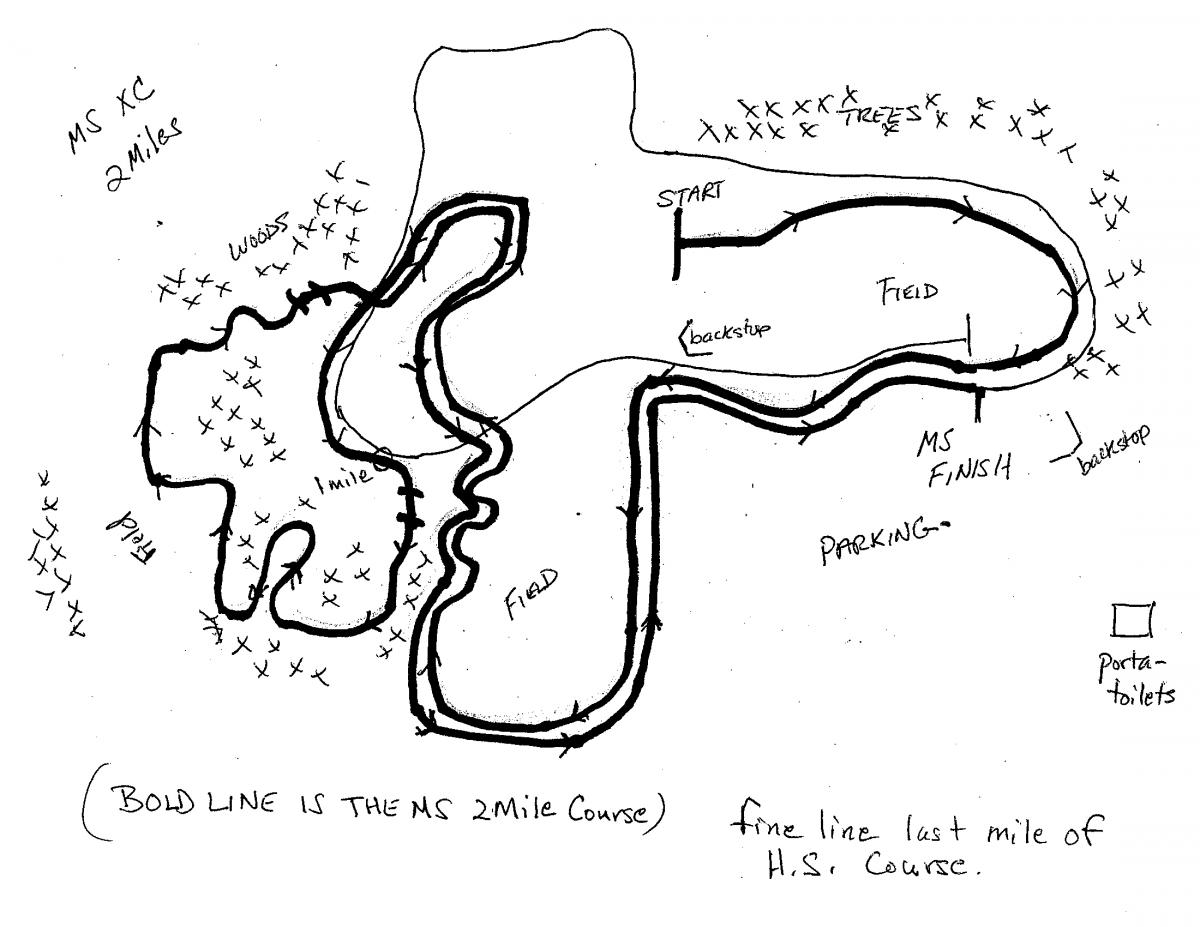 MS XC
2 Miles
TREES
START
WOODS
FIELD
backstop
MS
FINISH
backstop
1 mile
Field
PARKING
FIELD
porta-
toilets
(BOLD LINE IS THE MS 2 Mile Course)
fine line last mile of
H.S. Course.